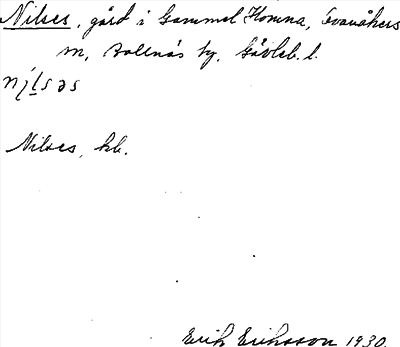 Nilses, gård i Gammel Homna, Ovanåkers
sn, Bollnäs tg, Gävleb. l.
nịḷsəs
Nilses, kb.
Erik Eriksson 1930.